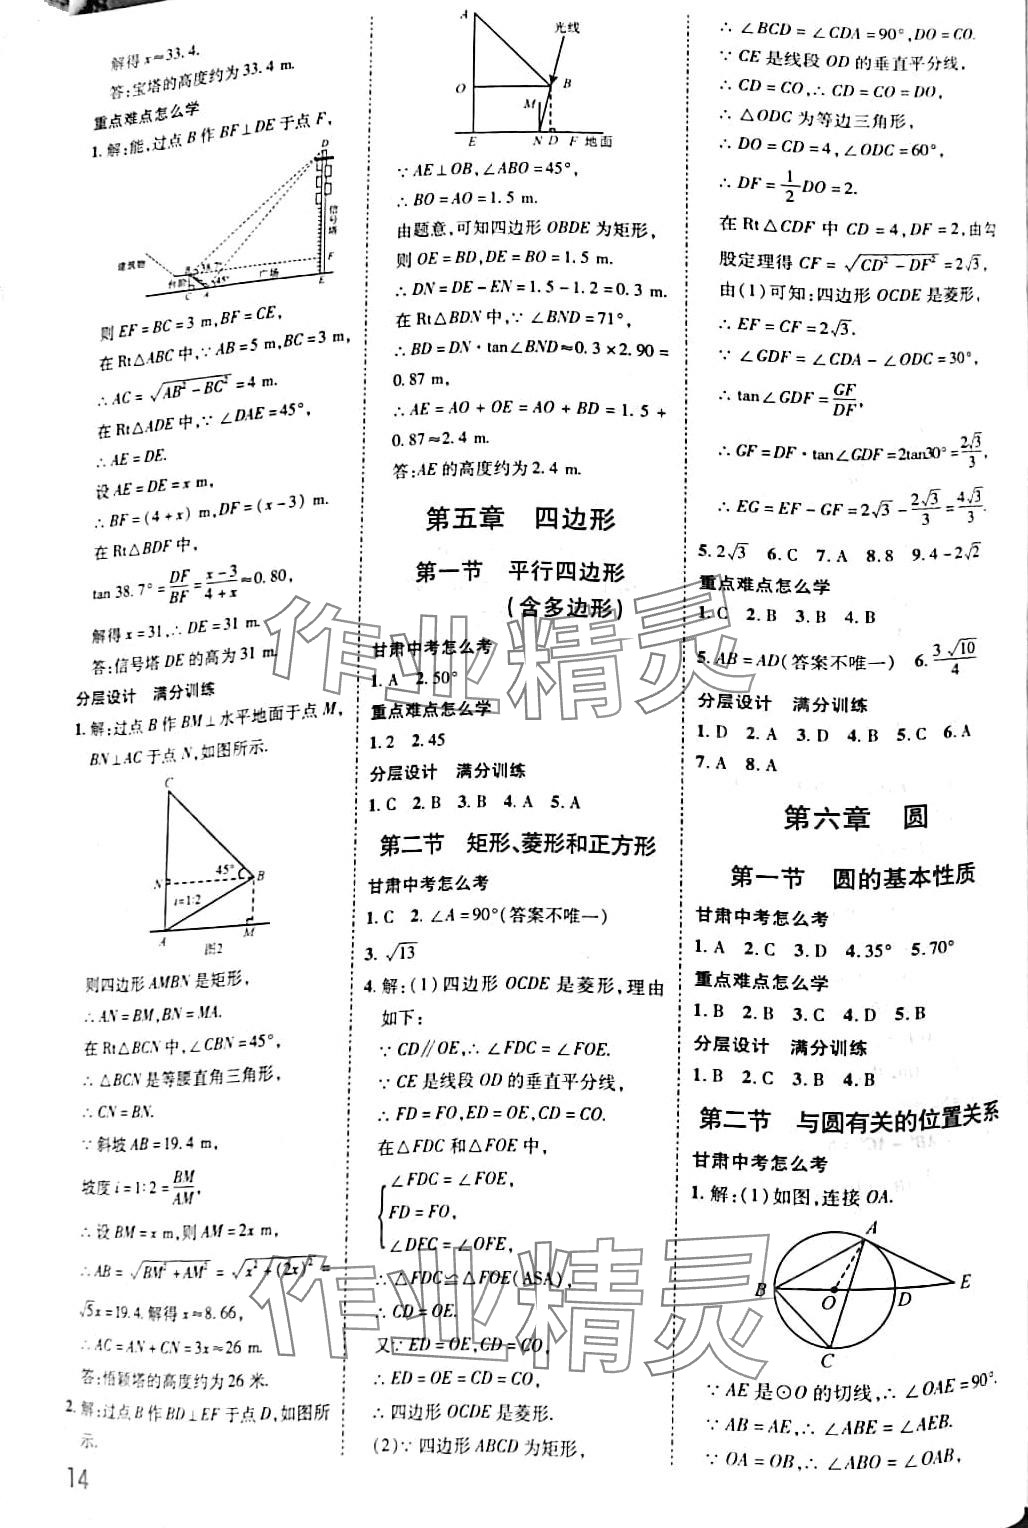 解得x≈33.4.
答:宝塔的高度约为33.4 m.
重点难点怎么学
1.解:能,过点B作BF⊥DE于点F,
D
信号塔
建筑物
B
38.7°
F
台阶
45°
广场
C
A
E
则EF=BC=3 m,BF=CE,
在Rt△ABC中,∵AB=5 m,BC=3 m,
∴AC=√(AB²-BC²)=4 m.
在Rt△ADE中,∵∠DAE=45°,
∴AE=DE.
设AE=DE=x m,
∴BF=(4+x) m,DF=(x-3) m.
在Rt△BDF中,
tan 38.7°=DF/BF=(x-3)/(4+x)≈0.80,
解得x=31,∴DE=31 m.
答:信号塔DE的高为31 m.
分层设计 满分训练
1.解:过点B作BM⊥水平地面于点M,
BN⊥AC于点N,如图所示.
C
45°
N
B
i=1:2
A
M
图2
则四边形AMBN是矩形,
∴AN=BM,BN=MA.
在Rt△BCN中,∠CBN=45°,
∴△BCN是等腰直角三角形,
∴CN=BN.
∵斜坡AB=19.4 m,
坡度i=1:2=BM/AM,
∴设BM=x m,则AM=2x m,
∴AB=√(BM²+AM²)=√(x²+(2x)²)=
√5x=19.4.解得x≈8.66,
∴AC=AN+CN=3x≈26 m.
答:悟颖塔的高度约为26米.
2.解:过点B作BD⊥EF于点D,如图所
示.
14
A
光线
O
B
M
E
N
D
F
地面
∵AE⊥OB,∠ABO=45°,
∴BO=AO=1.5 m.
由题意,可知四边形OBDE为矩形,
则OE=BD,DE=BO=1.5 m.
∴DN=DE-EN=1.5-1.2=0.3 m.
在Rt△BDN中,∵∠BND=71°,
∴BD=DN·tan∠BND≈0.3×2.90=
0.87 m,
∴AE=AO+OE=AO+BD=1.5+
0.87≈2.4 m.
答:AE的高度约为2.4 m.
第五章 四边形
第一节 平行四边形
(含多边形)
甘肃中考怎么考
1.A 2.50°
重点难点怎么学
1.2 2.45
分层设计 满分训练
1.C 2.B 3.B 4.A 5.A
第二节 矩形、菱形和正方形
甘肃中考怎么考
1.C 2.∠A=90°(答案不唯一)
3.√13
4.解:(1)四边形OCDE是菱形,理由
如下:
∵CD∥OE,∴∠FDC=∠FOE.
∵CE是线段OD的垂直平分线,
∴FD=FO,ED=OE,CD=CO.
在△FDC和△FOE中,
∠FDC=∠FOE,
FD=FO,
∠DFC=∠OFE,
∴△FDC≌△FOE(ASA),
∴CD=OE.
又∵ED=OE,CD=CO,
∴ED=OE=CD=CO,
∴四边形OCDE是菱形.
(2)∵四边形ABCD为矩形,
∴∠BCD=∠CDA=90°,DO=CO.
∵CE是线段OD的垂直平分线,
∴CD=CO,∴CD=CO=DO,
∴△ODC为等边三角形,
∴DO=CD=4,∠ODC=60°,
∴DF=1/2DO=2.
在Rt△CDF中CD=4,DF=2,由勾
股定理得CF=√(CD²-DF²)=2√3,
由(1)可知:四边形OCDE是菱形,
∴EF=CF=2√3.
∵∠GDF=∠CDA-∠ODC=30°,
∴tan∠GDF=GF/DF,
∴GF=DF·tan∠GDF=2tan30°=2√3/3,
∴EG=EF-GF=2√3-2√3/3=4√3/3.
5.2√3 6.C 7.A 8.8 9.4-2√2
重点难点怎么学
1.C 2.B 3.B 4.B
5.AB=AD(答案不唯一) 6.3√10/4
分层设计 满分训练
1.D 2.A 3.D 4.B 5.C 6.A
7.A 8.A
第六章 圆
第一节 圆的基本性质
甘肃中考怎么考
1.A 2.C 3.D 4.35° 5.70°
重点难点怎么学
1.B 2.B 3.C 4.D 5.B
分层设计 满分训练
1.B 2.C 3.B 4.B
第二节 与圆有关的位置关系
甘肃中考怎么考
1.解:(1)如图,连接OA.
A
B
O
D
E
C
∵AE是⊙O的切线,∴∠OAE=90°.
∵AB=AE,∴∠ABE=∠AEB.
∵OA=OB,∴∠ABO=∠OAB,
作业精灵
作业精灵